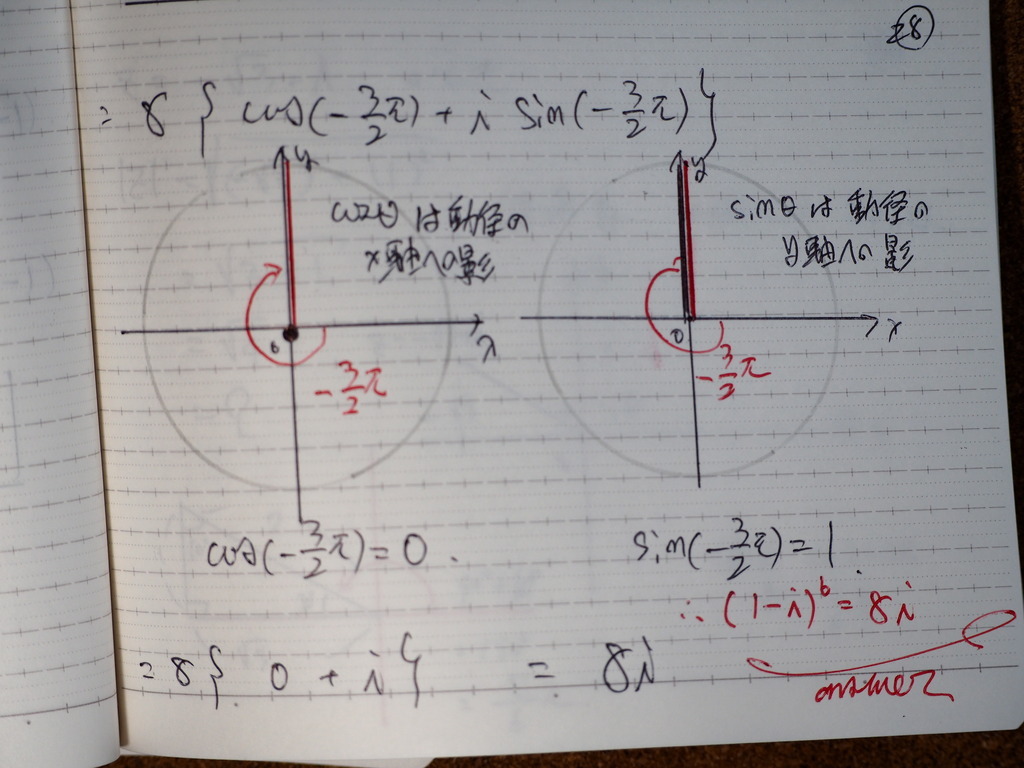 28
= 8 { cos(-3/2 π) + i sin(-3/2 π) }
y
cosθ は動径の
x軸への影
0
x
-3/2 π
y
sinθ は動径の
y軸への影
0
x
-3/2 π
cos(-3/2 π) = 0.
sin(-3/2 π) = 1.
∴ (1-i)^6 = 8i
= 8 { 0 + i } = 8i
answer